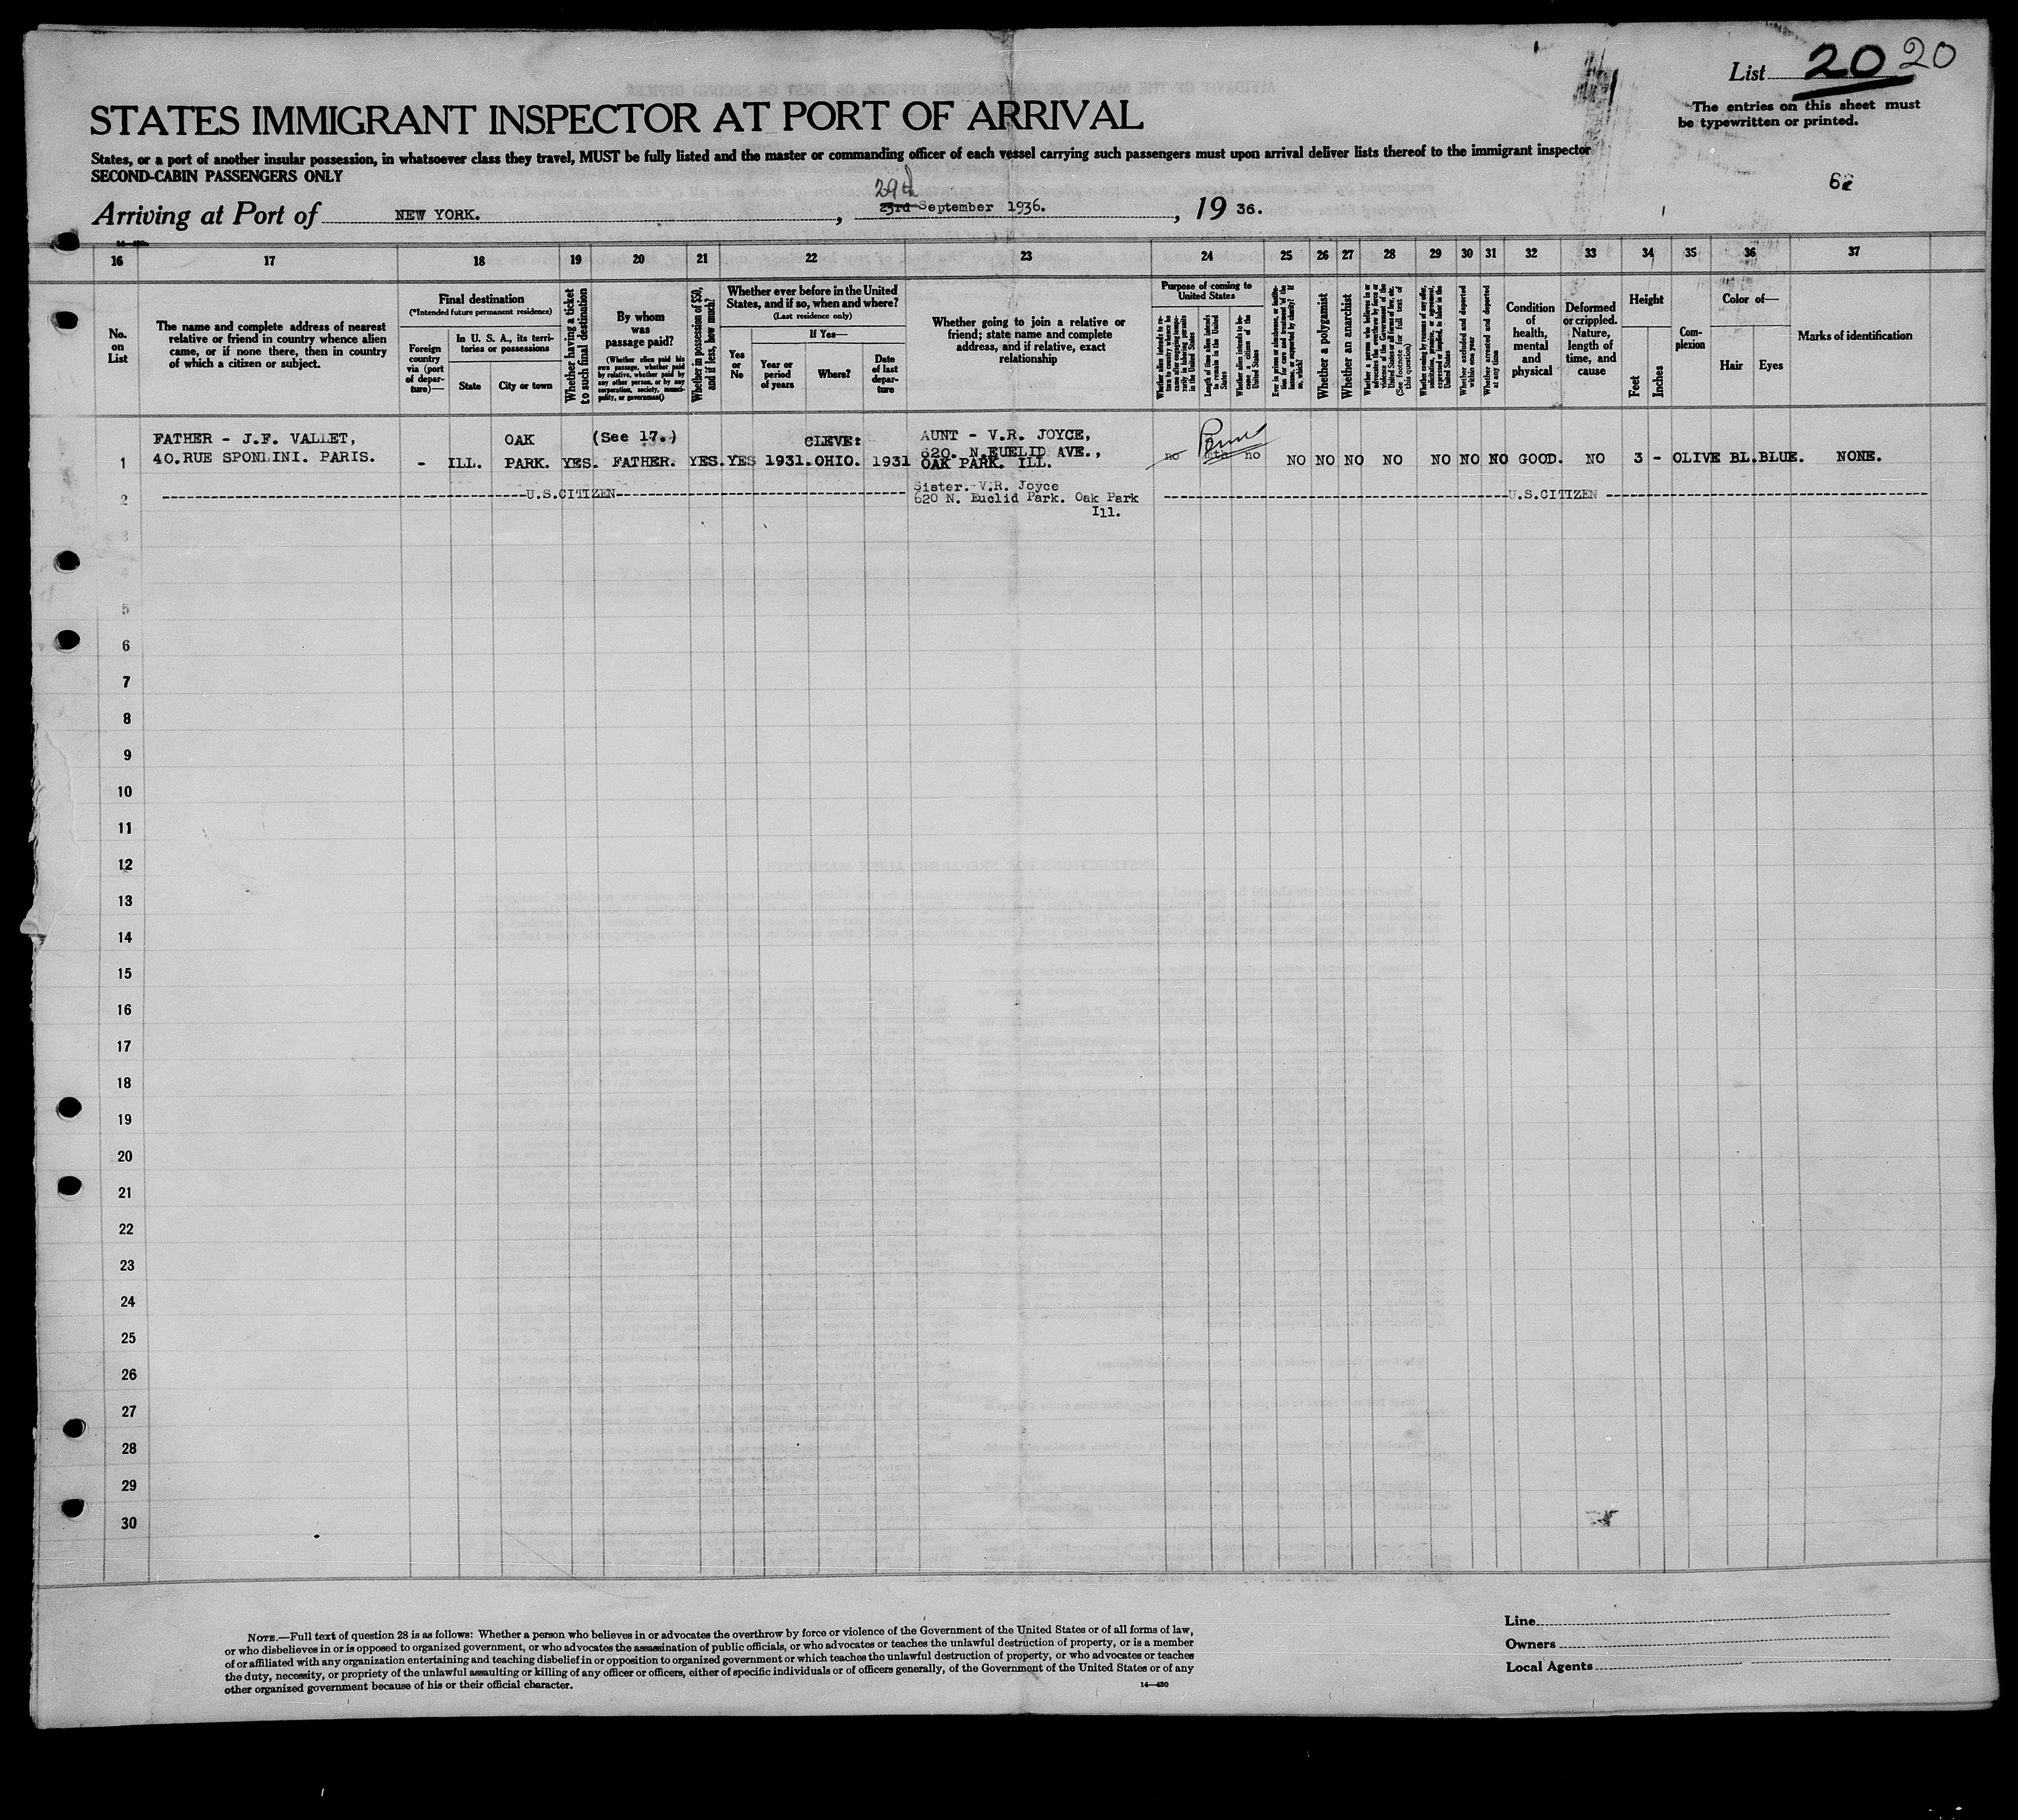 List 20 20
The entries on this sheet must
be typewritten or printed.
STATES IMMIGRANT INSPECTOR AT PORT OF ARRIVAL
States, or a port of another insular possession, in whatsoever class they travel, MUST be fully listed and the master or commanding officer of each vessel carrying such passengers must upon arrival deliver lists thereof to the immigrant inspector
SECOND-CABIN PASSENGERS ONLY
29th
Arriving at Port of NEW YORK. , 23rd September 1936. , 19 36.
16 17 18 19 20 21 22 23 24 25 26 27 28 29 30 31 32 33 34 35 36 37
No.
on
List
The name and complete address of nearest
relative or friend in country whence alien
came, or if none there, then in country
of which a citizen or subject.
Final destination
(*Intended future permanent residence)
Foreign
country
via (port
of depar-
ture)—
In U. S. A., its terri-
tories or possessions
State
City or town
Whether having a ticket
to such final destination
By whom
was
passage paid?
(Whether alien paid his
own passage, whether paid
by relative, whether paid by
any other person, or by any
corporation, society, munici-
pality, or government)
Whether in possession of $50,
and if less, how much?
Whether ever before in the United
States, and if so, when and where?
(Last residence only)
Yes
or
No
If Yes—
Year or
period
of years
Where?
Date
of last
depar-
ture
Whether going to join a relative or
friend; state name and complete
address, and if relative, exact
relationship
Purpose of coming to
United States
Whether alien intends to re-
turn to country whence he
came after engaging tempo-
rarily in laboring pursuits
in the United States
Length of time alien intends
to remain in the United
States
Whether alien intends to be-
come a citizen of the
United States
Ever in prison or almshouse, or institu-
tion for care and treatment of the
insane, or supported by charity? If
so, which?
Whether a polygamist
Whether an anarchist
Whether a person who believes in or
advocates the overthrow by force or
violence of the Government of the
United States or all forms of law, etc.
(See footnote for full text of
this question)
Whether coming by reasons of any offer,
solicitation, promise, or agreement,
expressed or implied, to labor in the
United States
Whether excluded and deported
within one year
Whether arrested and deported
at any time
Condition
of
health,
mental
and
physical
Deformed
or crippled.
Nature,
length of
time, and
cause
Height
Feet
Inches
Com-
plexion
Color of—
Hair
Eyes
Marks of identification
FATHER - J.F. VALLET, OAK (See 17.) CLEVE: AUNT - V.R. JOYCE,
40.RUE SPONLINI. PARIS. 620. N.EUCLID AVE.,
1 - ILL. PARK. YES. FATHER. YES. YES 1931. OHIO. 1931 OAK PARK. ILL. no no NO NO NO NO NO NO NO GOOD. NO 3 - OLIVE BL. BLUE. NONE.
Sister. V.R. Joyce
2 U.S.CITIZEN 620 N. Euclid Park. Oak Park U.S.CITIZEN
Ill.
3
4
5
6
7
8
9
10
11
12
13
14
15
16
17
18
19
20
21
22
23
24
25
26
27
28
29
30
NOTE.—Full text of question 28 is as follows: Whether a person who believes in or advocates the overthrow by force or violence of the Government of the United States or of all forms of law,
or who disbelieves in or is opposed to organized government, or who advocates the assassination of public officials, or who advocates or teaches the unlawful destruction of property, or is a member
of or affiliated with any organization entertaining and teaching disbelief in or opposition to organized government or which teaches the unlawful destruction of property, or who advocates or teaches
the duty, necessity, or propriety of the unlawful assaulting or killing of any officer or officers, either of specific individuals or of officers generally, of the Government of the United States or of any
other organized government because of his or their official character.
14—420
Line
Owners
Local Agents